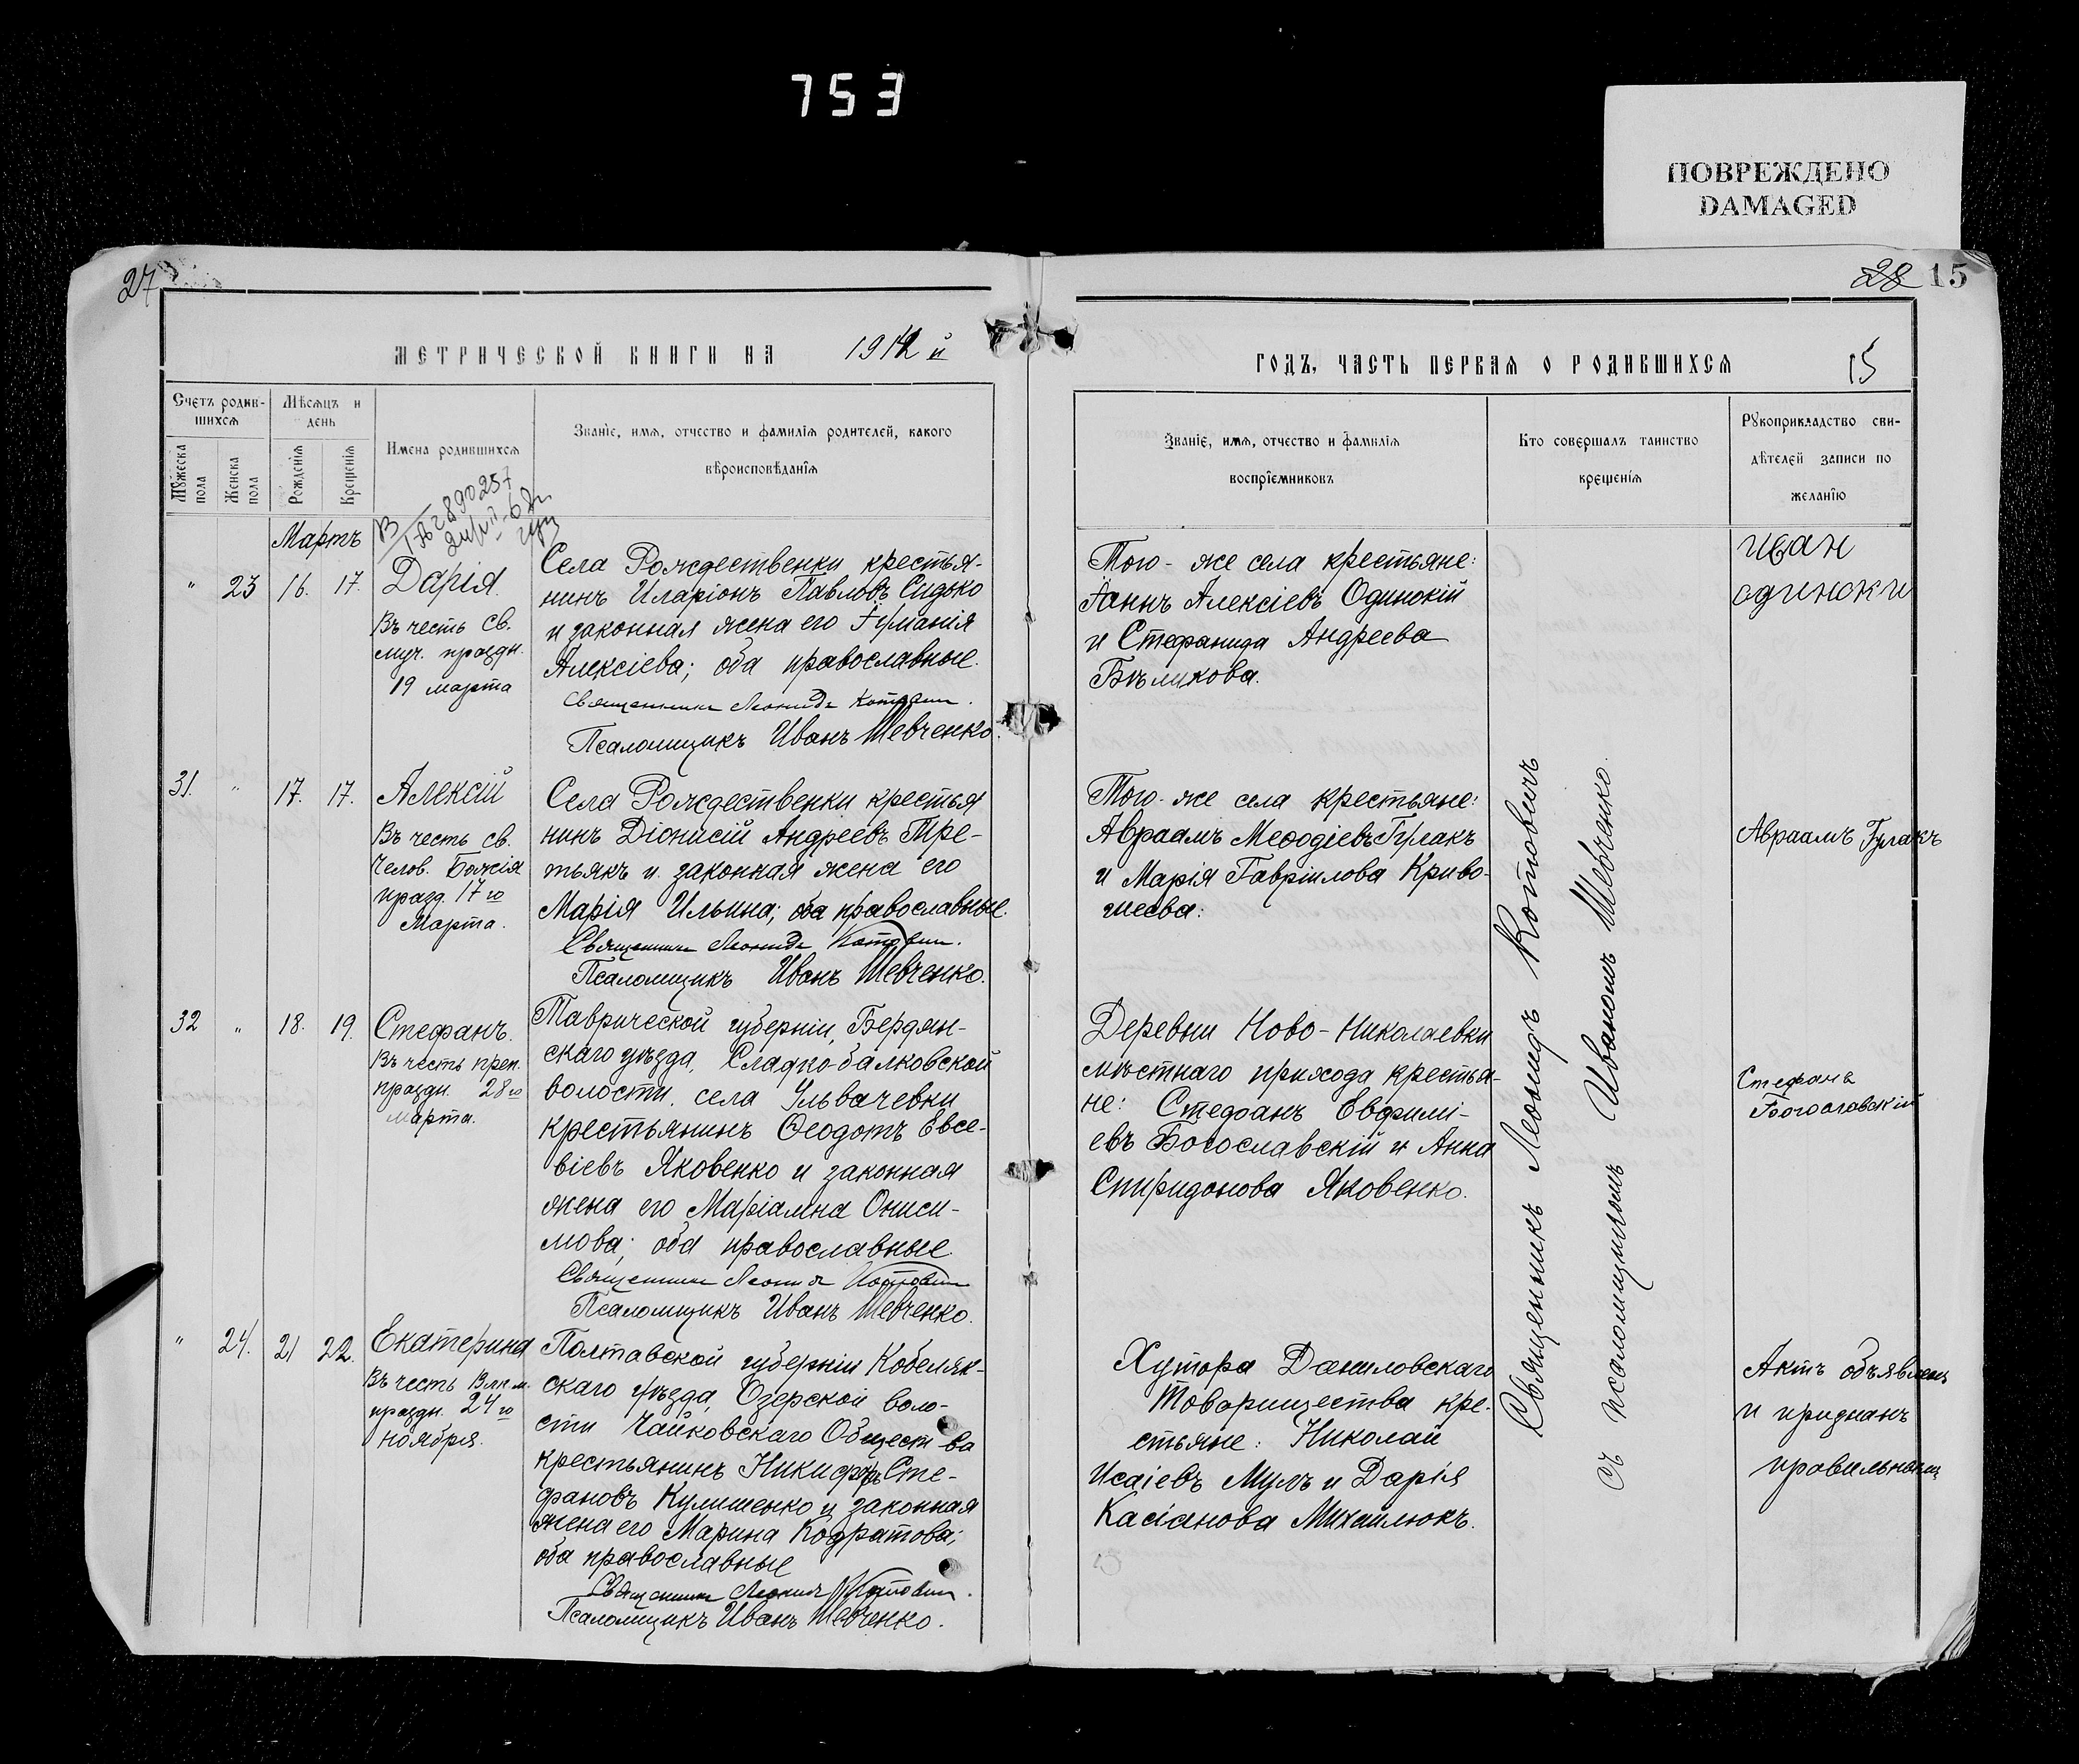 753
ПОВРЕЖДЕНО
DAMAGED
27
28 15
МЕТРИЧЕСКОЙ КНИГИ НА 1912 й
ГОДЪ, ЧАСТЬ ПЕРВАЯ О РОДИВШИХСЯ
15
Счетъ родив-
шихся
Мужеска
пола
Женска
пола
Мѣсяцъ и
день
Рожденія
Крещенія
Имена родившихся
Званіе, имя, отчество и фамилія родителей, какого
вѣроисповѣданія
Званіе, имя, отчество и фамилія
воспріемниковъ
Кто совершалъ таинство
крещенія
Рукоприкладство сви-
дѣтелей записи по
желанію
Мартъ
" 23 16. 17. Дарія.
Въ честь св.
муч. праздн.
19 марта
Села Рождественки крестья-
нинъ Иларіонъ Павловъ Сидько
и законная жена его Іерманія
Алексіева; оба православные.
Священникъ Леонидъ Котовичъ.
Псаломщикъ Иванъ Шевченко.
Того-же села крестьяне:
Іоаннъ Алексіевъ Одинокій
и Стефанида Андреева
Бѣликова.
иван
одиноки
31. " 17. 17. Алексій
Въ честь св.
Челов. Божія
празд. 17го
Марта.
Села Рождественки крестья
нинъ Діонисій Андреевъ Тре-
тьякъ и законная жена его
Марія Ильина; оба православные.
Священникъ Леонидъ Котовичъ.
Псаломщикъ Иванъ Шевченко.
Того-же села крестьяне:
Авраамъ Меѳодіевъ Гулакъ
и Марія Гавріилова Криво-
шеева:
Авраамъ Гулакъ
32 " 18. 19. Стефанъ.
Въ честь преп.
праздн. 28го
марта.
Таврической губерніи, Бердян-
скаго уѣзда, Сладко-балковской
волости, села Ульвачевки
крестьянинъ Ѳеодотъ Евсе-
віевъ Яковенко и законная
жена его Маріамна Ониси-
мова; оба православные.
Священникъ Леонидъ Котовичъ
Псаломщикъ Иванъ Шевченко.
Деревни Ново-Николаевки
мѣстнаго прихода крестья-
не: Стефанъ Евфимі-
евъ Богославскій и Анна
Спиридонова Яковенко.
Стефанъ
Богославскій
" 24. 21 22. Екатерина
Въ честь Влкм.
праздн. 24го
ноября.
Полтавской губерніи Кобеляк-
скаго уѣзда, Озерской воло-
сти Чайковскаго Общест-ва
крестьянинъ Никифоръ Сте-
фановъ Кулишенко и законная
жена его Марина Кодратова;
оба православные
Священникъ Леонидъ Котовичъ.
Псаломщикъ Иванъ Шевченко.
Хутора Даниловскаго
Товарищества кре-
стьяне: Николай
Исаіевъ Мулъ и Дарія
Касіанова Михайлюкъ.
Актъ объявленъ
и признанъ
правильнымъ
Священникъ Леонидъ Котовичъ
съ псаломщикомъ Иваномъ Шевченко.